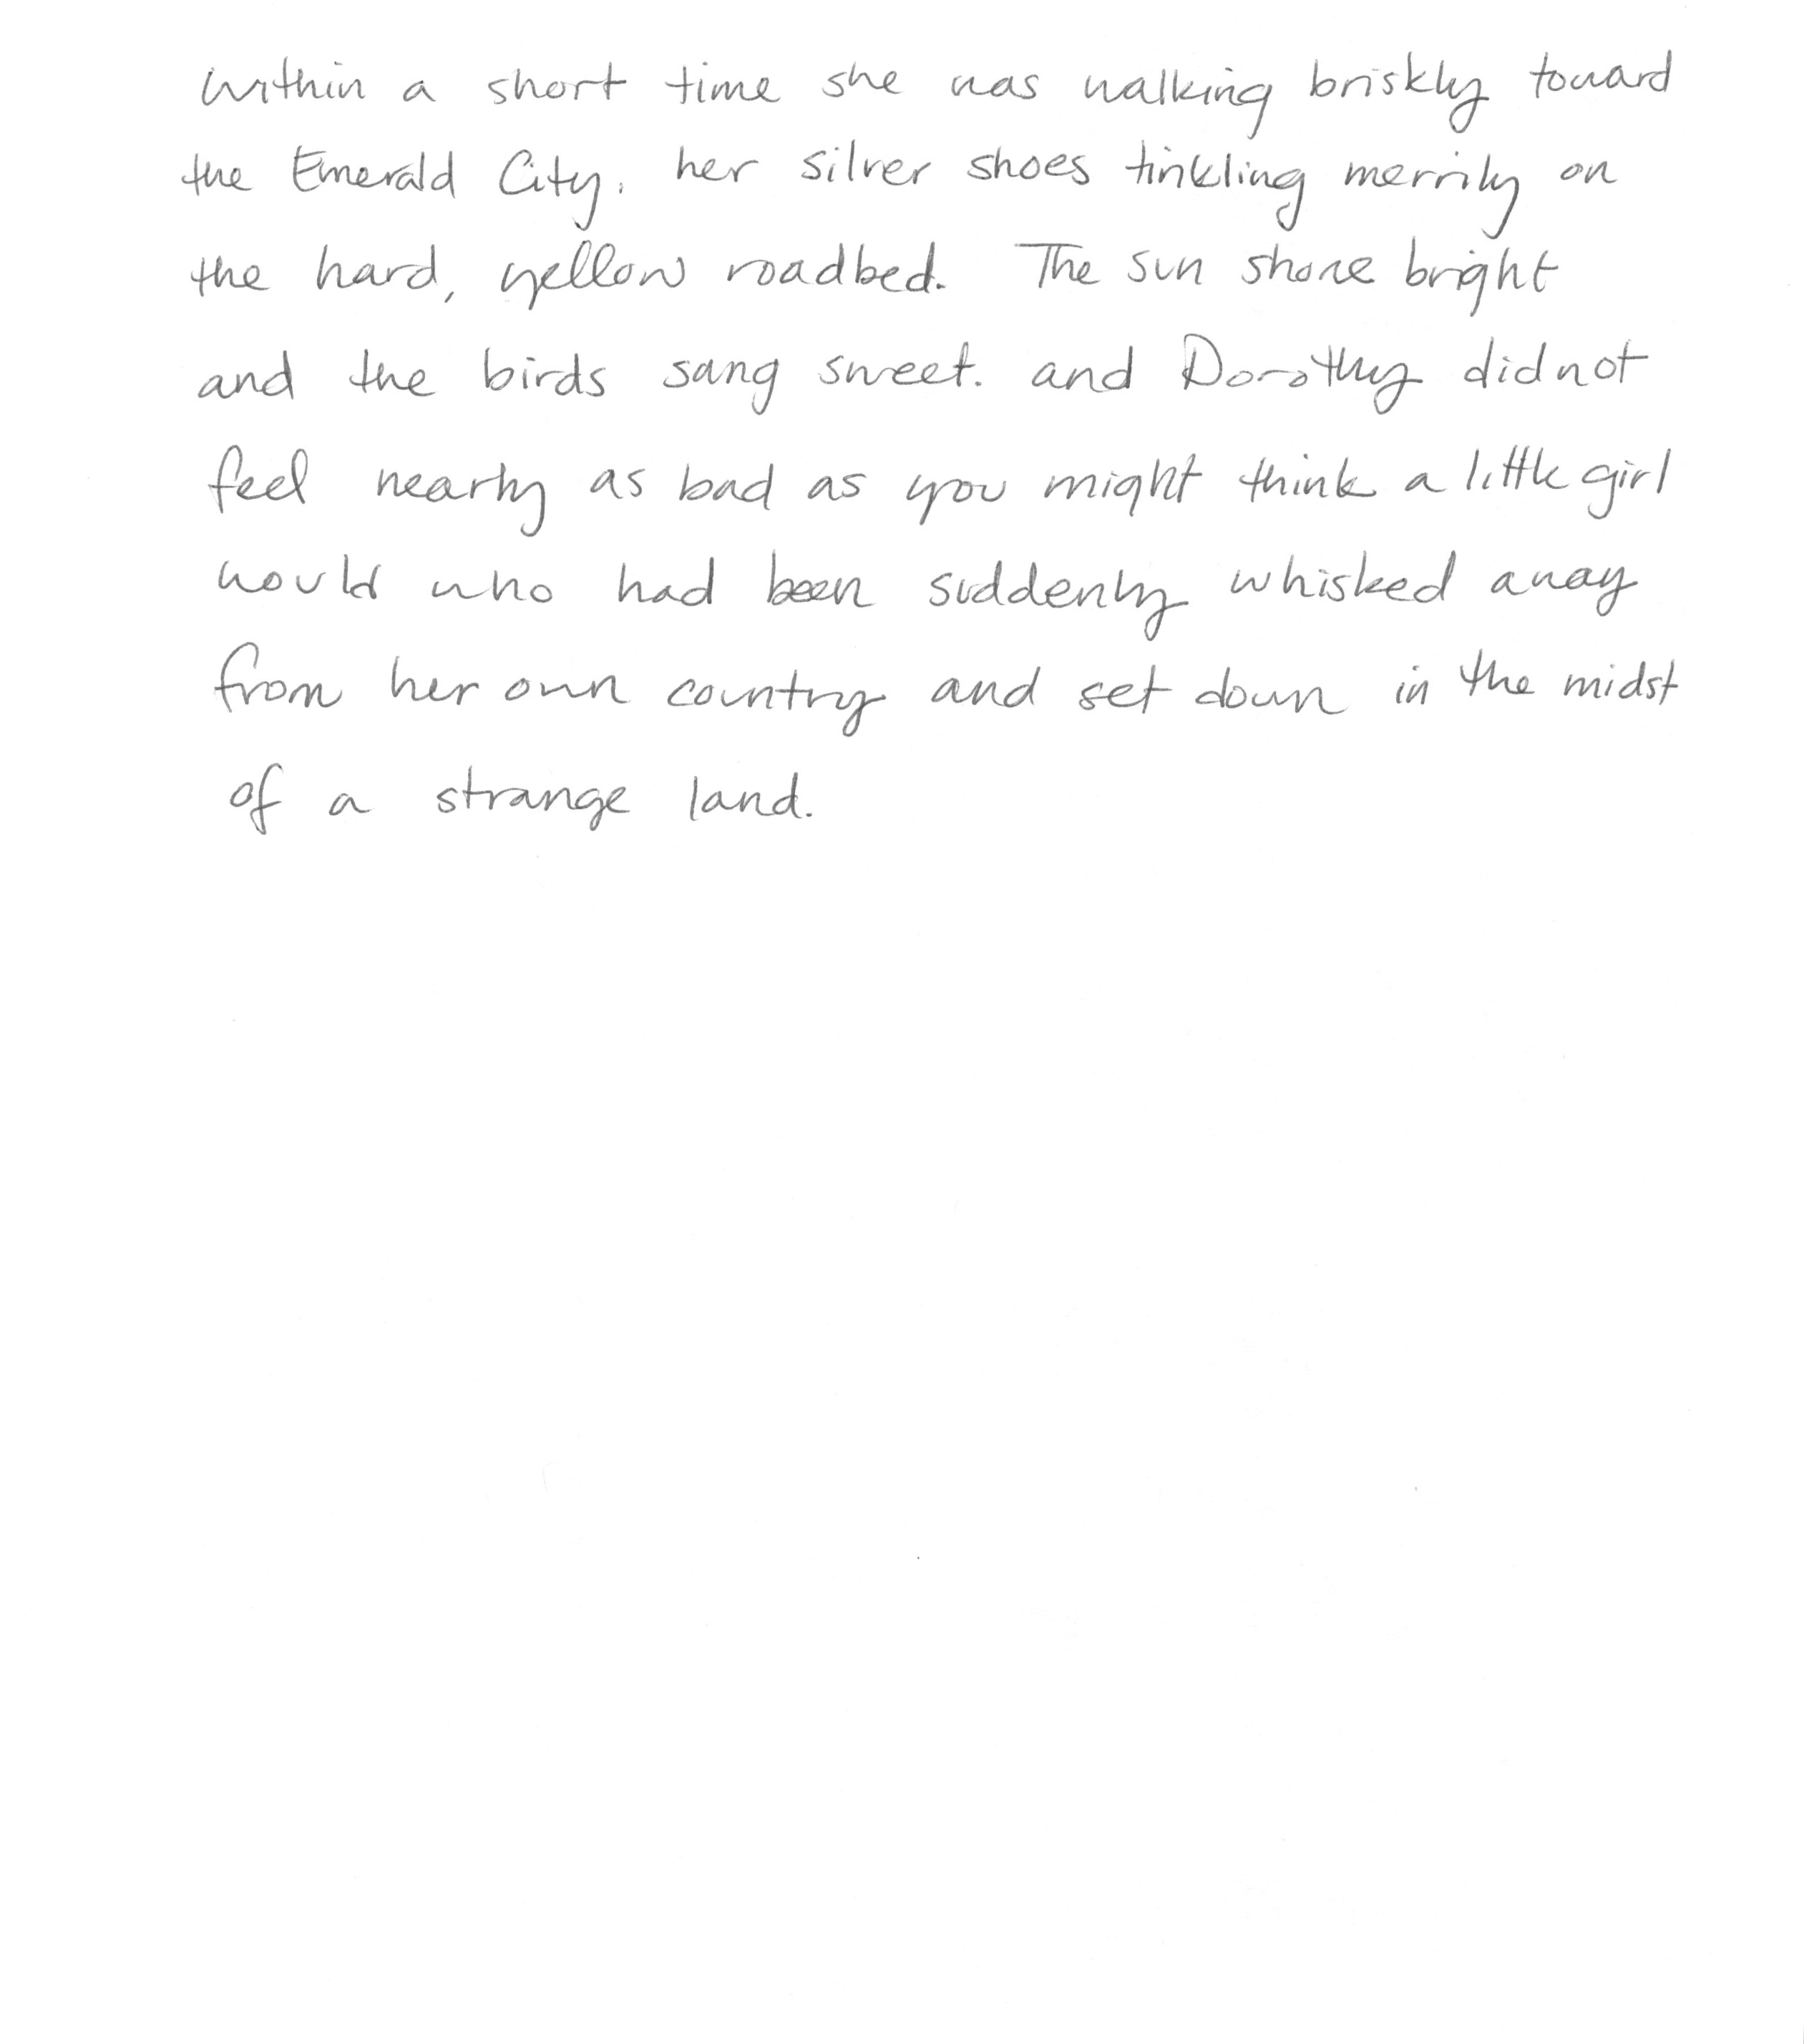 Within a short time she was walking briskly toward
the Emerald City. her silver shoes tinkling merrily on
the hard, yellow roadbed. The sun shone bright
and the birds sang sweet. and Dorothy did not
feel nearly as bad as you might think a little girl
would who had been suddenly whisked away
from her own country and set down in the midst
of a strange land.